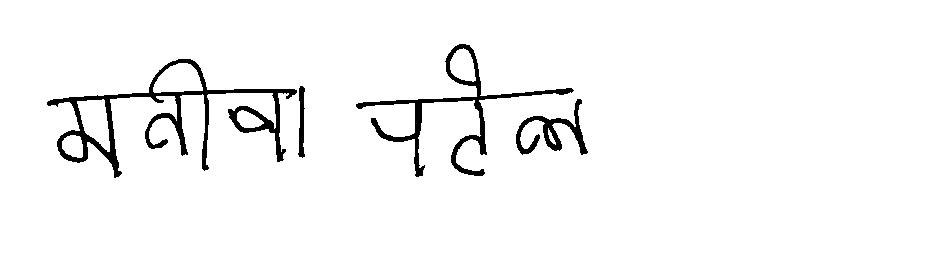 मनीषा पटेल